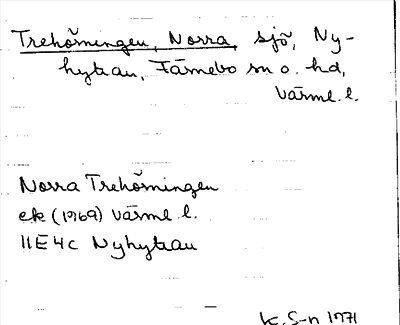 Trehörningen, Norra, sjö, Ny-
hyttan, Färnebo sn o. hd,
Värml. l.
Norra Trehörningen
ek (1969) Värml. l.
11E4c Nyhyttan
K. S-n 1971